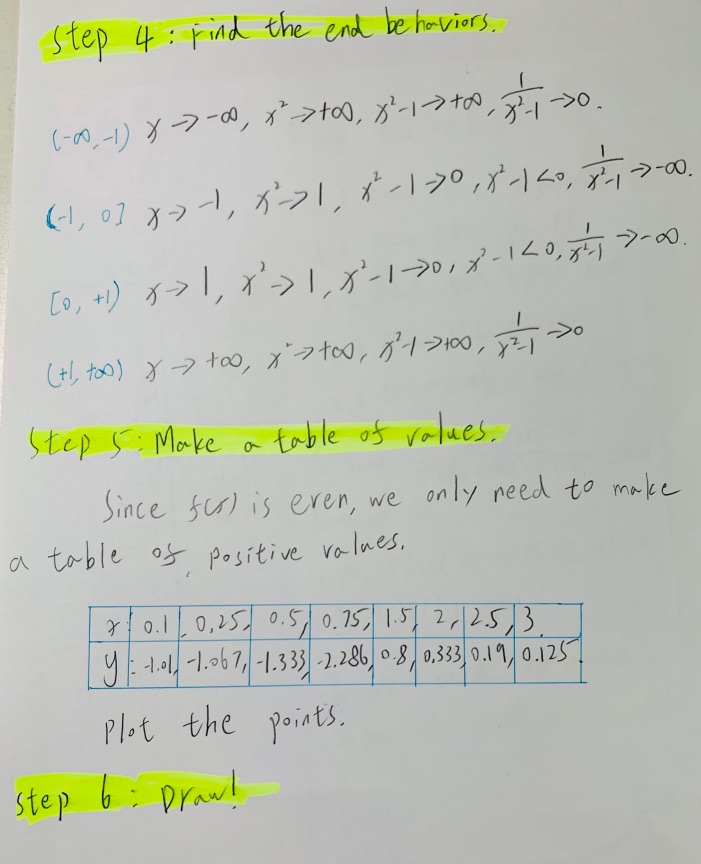 Step 4: Find the end behaviors.
(-∞, -1) x → -∞, x² → +∞, x²-1 → +∞, 1/(x²-1) → 0.
(-1, 0] x → -1, x² → 1, x²-1 → 0, x²-1 < 0, 1/(x²-1) → -∞.
[0, +1) x → 1, x² → 1, x²-1 → 0, x²-1 < 0, 1/(x²-1) → -∞.
(+1, +∞) x → +∞, x² → +∞, x²-1 → +∞, 1/(x²-1) → 0
Step 5: Make a table of values.
Since f(x) is even, we only need to make
a table of positive values.
x: 0.1, 0.25, 0.5, 0.75, 1.5, 2, 2.5, 3
y: -1.01, -1.067, -1.333, -2.286, 0.8, 0.333, 0.19, 0.125
Plot the points.
Step 6: Draw!